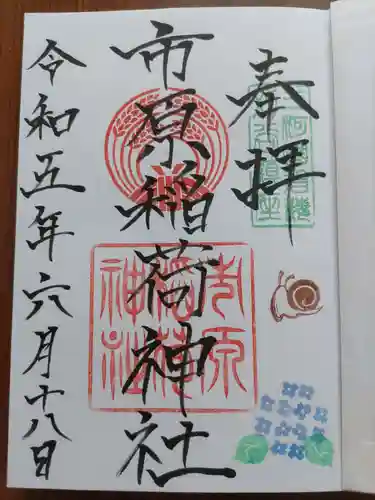 奉拝
市原稲荷神社
令和五年六月十八日
市原
稲荷
神社